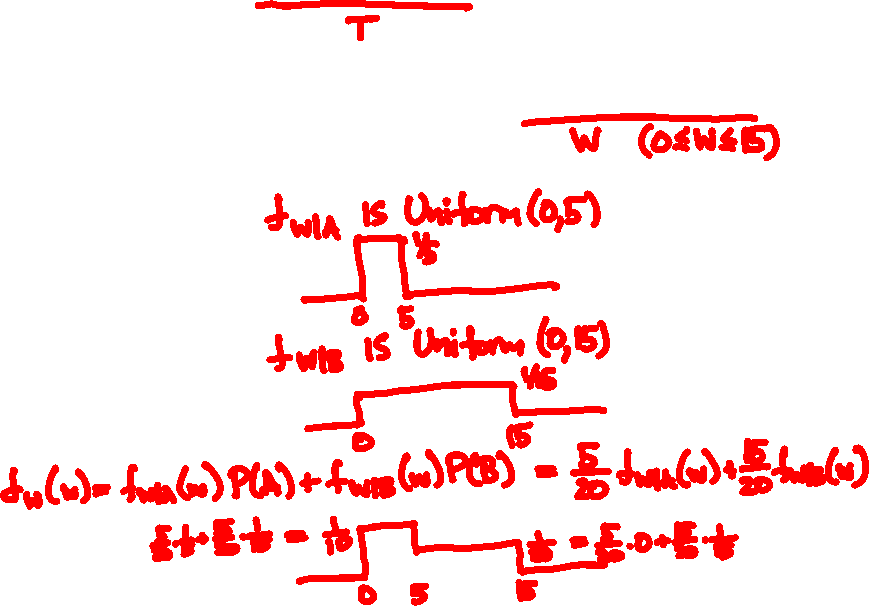 T
W (0≤W≤15)
f_{W|A} is Uniform(0,5)
1/5
0 5
f_{W|B} is Uniform (0,15)
1/15
0 15
f_W(w) = f_{W|A}(w) P(A) + f_{W|B}(w) P(B) = 5/20 f_{W|A}(w) + 15/20 f_{W|B}(w)
5/20 · 1/5 + 15/20 · 1/15 = 1/10 1/20 = 5/20 · 0 + 15/20 · 1/15
0 5 15